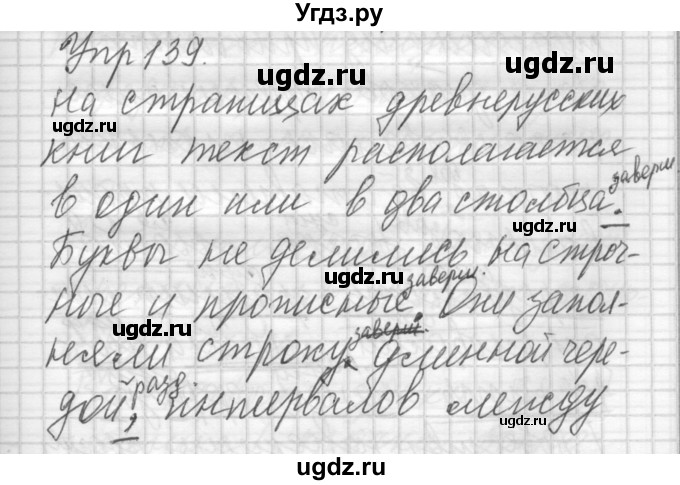 Угдз.ру
Упр 139.
ugdz.ru ugdz.ru
на страницах древнерусских
ugdz.ru ugdz.ru
книг текст располагается
заверш.
в один или в два столбца.
Буквы не делились на строч-
ugdz.ru
заверш.
ные и прописные. Они запол-
ugdz.ru заверш. ugdz.ru
няли строку длинной чере-
разд.
дой, интервалов между
ugdz.ru ugdz.ru
ugdz.ru